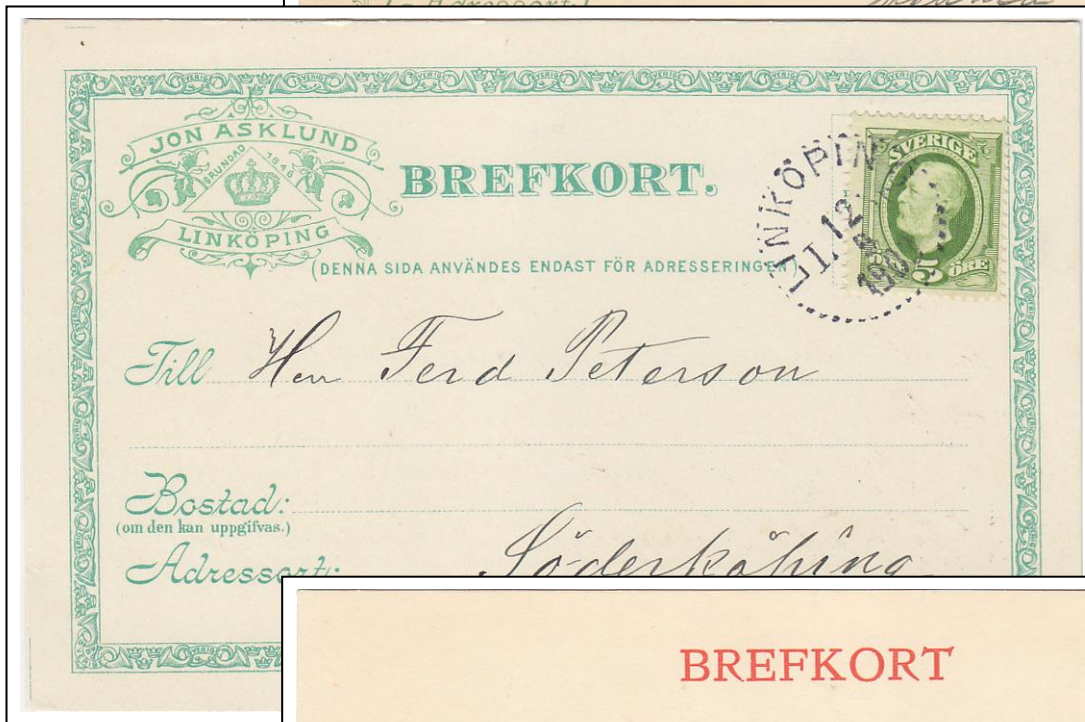 (- Adressort:)
JON ASKLUND
GRUNDAD 1846
LINKÖPING
BREFKORT.
(DENNA SIDA ANVÄNDES ENDAST FÖR ADRESSERINGEN)
SVERIGE
5 ÖRE
LINKÖPIN
12
Till Herr Ferd Peterson
Bostad:
(om den kan uppgifvas.)
Adressort: Söderköping
BREFKORT